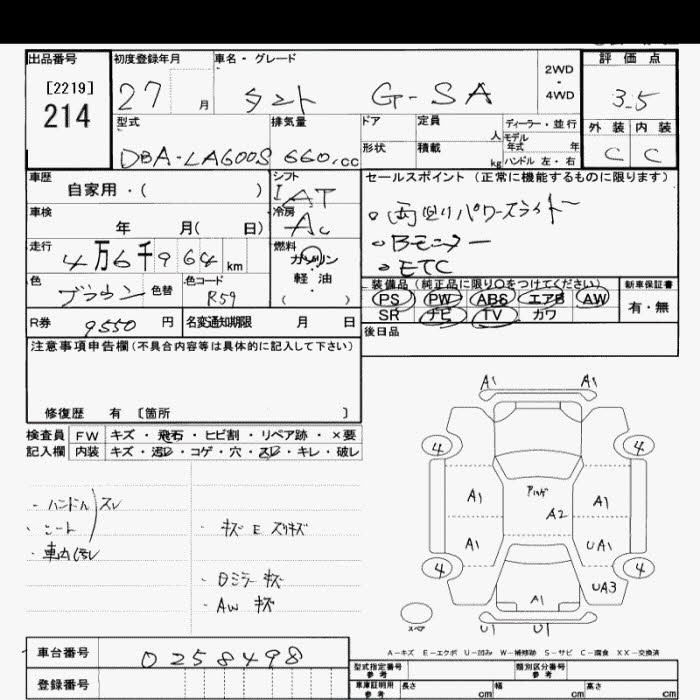 出品番号 初度登録年月 車名・グレード 評価点
[2219]
214
27 月 タント G-SA
2WD
・
4WD
3.5
外装 内装
C C
型式 排気量 ドア 定員 人 ディーラー・並行
モデル
年式 年
DBA-LA600S 660.cc 形状 積載 kg ハンドル 左・右
車歴 シフト セールスポイント (正常に機能するものに限ります)
自家用・( ) IAT
冷房
AC
。両側パワースライド
・Bモニター
・ETC
車検 年 月( 日)
走行 4万6千964km
燃料
ガソリン
・
軽油
( )
色 色替 色コード
ブラウン R59
装備品 (純正品に限り○をつけてください) 新車保証書
PS PW ABS エアB AW
SR ナビ TV カワ
有・無
R券 9550 円 名変通知期限 月 日
後日品
注意事項申告欄(不具合内容等は具体的に記入して下さい)
修復歴 有 [箇所 ]
検査員 FW キズ・飛石・ヒビ割・リペア跡・×要
記入欄 内装 キズ・汚レ・コゲ・穴・スレ・キレ・破レ
・ハンドル スレ
・シート
・車内汚レ
・キズ E スリキズ
・Dミラー キズ
・AW キズ
A1 A1
4 4
A1 A2 A1
A1 UA1
4 4
UA3
A1
スペア
U1 U1
A-キズ E-エクボ U-凹み W-補修跡 S-サビ C-腐食 XX-交換済
車台番号 0258498
登録番号
型式指定番号
参考
類別区分番号
参考
車庫証明用
参考
長さ cm 幅 cm 高さ cm